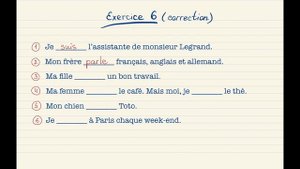 Exercice 6 (correction)
① Je suis l'assistante de monsieur Legrand.
② Mon frère parle français, anglais et allemand.
③ Ma fille ________ un bon travail.
④ Ma femme ________ le café. Mais moi, je ________ le thé.
⑤ Mon chien ________ Toto.
⑥ Je ________ à Paris chaque week-end.